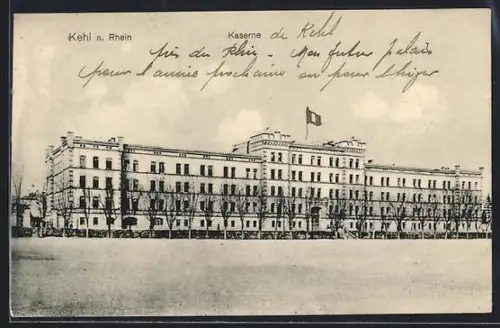 Kehl a. Rhein
Kaserne de Kehl
près du Rhin. Mon futur palais
pour l'année prochaine ou pour l'hiver